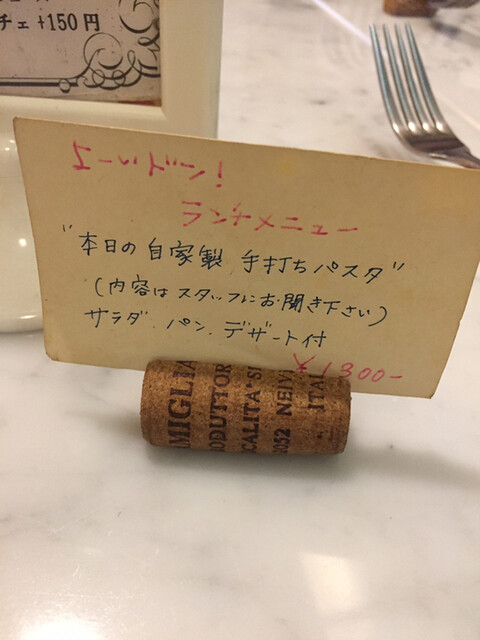 チェ +150円
よーいドン!
ランチメニュー
"本日の自家製 手打ちパスタ"
(内容はスタッフにお聞き下さい)
サラダ.パン.デザート付
¥1300-
MIGLIA
ODUTTOR
CALITA' S
2052 NEIV
ITAL